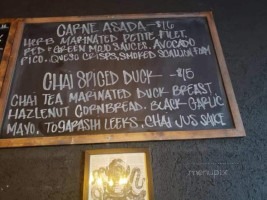 CARNE ASADA - $16
HERB MARINATED PETITE FILET,
RED + GREEN MOJO SAUCES, AVOCADO
PICO, QUESO CRISPS, SMOKED SCALLION FOAM
CHAI SPICED DUCK - $15
CHAI TEA MARINATED DUCK BREAST,
HAZLENUT CORNBREAD, BLACK GARLIC
MAYO, TOGARASHI LEEKS, CHAI JUS SAUCE
menupix